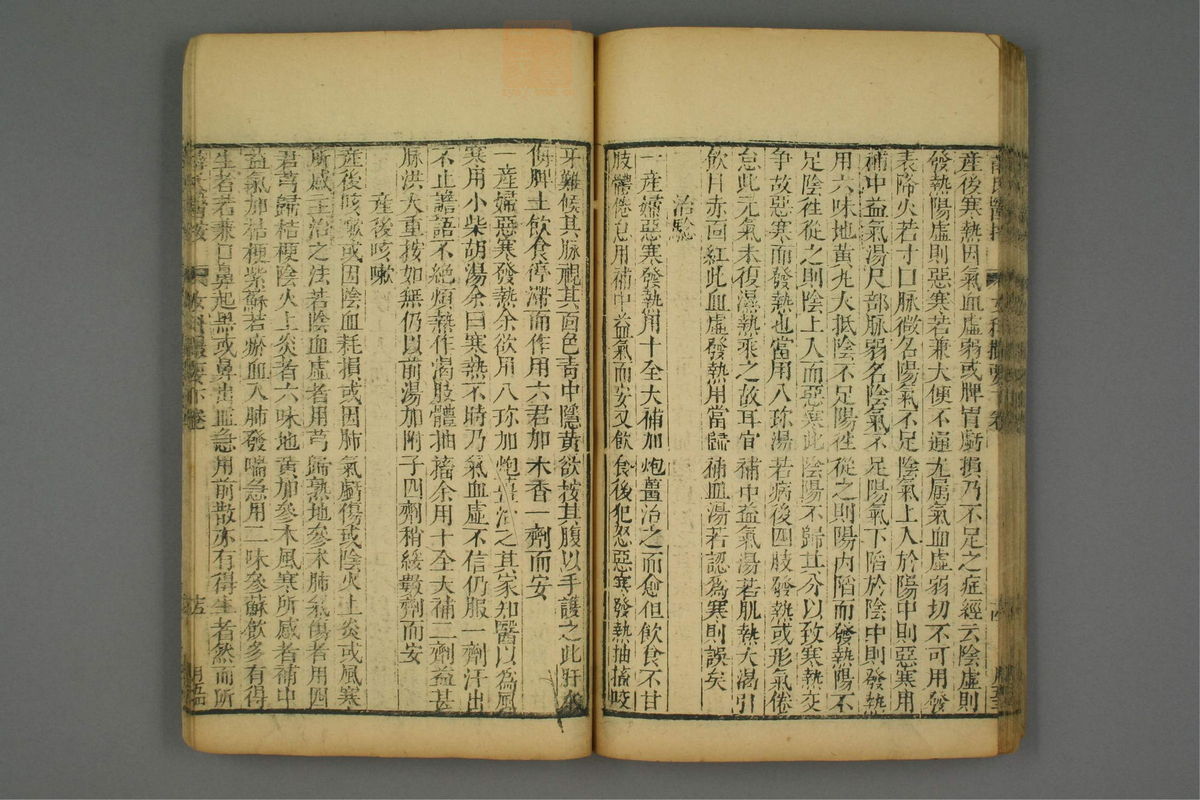 產後寒熱因氣血虛弱或脾胃虧損乃不足之症經云陰虛則
發熱陽虛則惡寒若兼大便不通尤屬氣血虛弱切不可用發
表降火若寸口脉微名陽氣不足陰氣上入於陽中則惡寒用
補中益氣湯尺部脉弱名陰氣不足陽氣下陷於陰中則發熱
用六味地黃丸大抵陰不足陽徃從之則陽內陷而發熱陽不
足陰徃從之則陰上入而惡寒此陰陽不歸其分以致寒熱交
争故惡寒而發熱也當用八珎湯若病後四肢發熱或形氣倦
怠此元氣未復濕熱乘之故耳宜補中益氣湯若肌熱大渴引
飲目赤面紅此血虛發熱用當歸補血湯若認為寒則誤矣
治驗
一產婦惡寒發熱用十全大補加炮薑治之而愈但飲食不甘
肢體倦怠用補中益氣而安又飲食後犯怒惡寒發熱抽搐咬
牙難候其脉視其面色青中隱黃欲按其腹以手護之此肝木
侮脾土飲食停滯而作用六君加木香一劑而安
一產婦惡寒發熱余欲用八珎加炮薑治之其家知醫以為風
寒用小柴胡湯余曰寒熱不時乃氣血虛不信仍服一劑汗出
不止譫語不絕煩熱作渴肢體抽搐余用十全大補二劑益甚
脉洪大重按如無仍以前湯加附子四劑稍緩數劑而安
產後咳嗽
產後咳嗽或因陰血耗損或因肺氣虧傷或陰火上炎或風寒
所感主治之法若陰血虛者用芎歸熟地參术肺氣傷者用四
君芎歸桔梗陰火上炎者六味地黃加參术風寒所感者補中
益氣加桔梗紫蘇若瘀血入肺發喘急用二味參蘇飲多有得
生者若兼口鼻起黑或鼻出血急用前散亦有得生者然而所